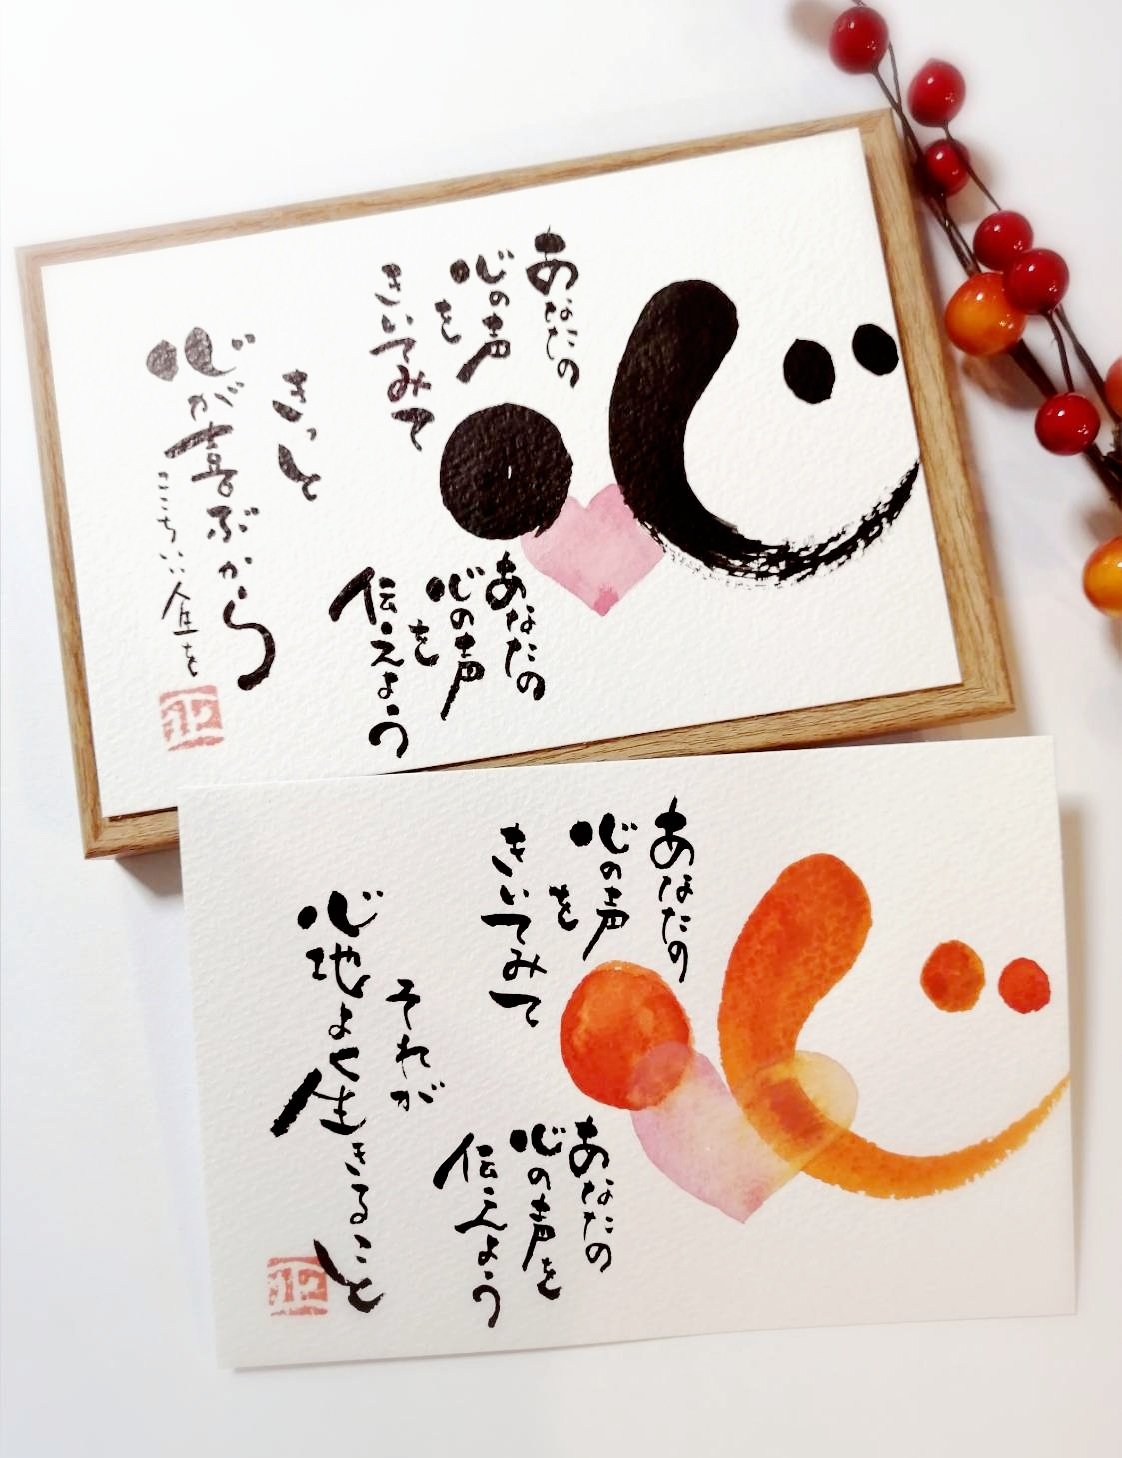 心
あなたの
心の声
を
きいてみて
あなたの
心の声
を
伝えよう
きっと
心が喜ぶから
ここちいい人生を
心
あなたの
心の声
を
きいてみて
あなたの
心の声を
伝えよう
それが
心地よく生きること